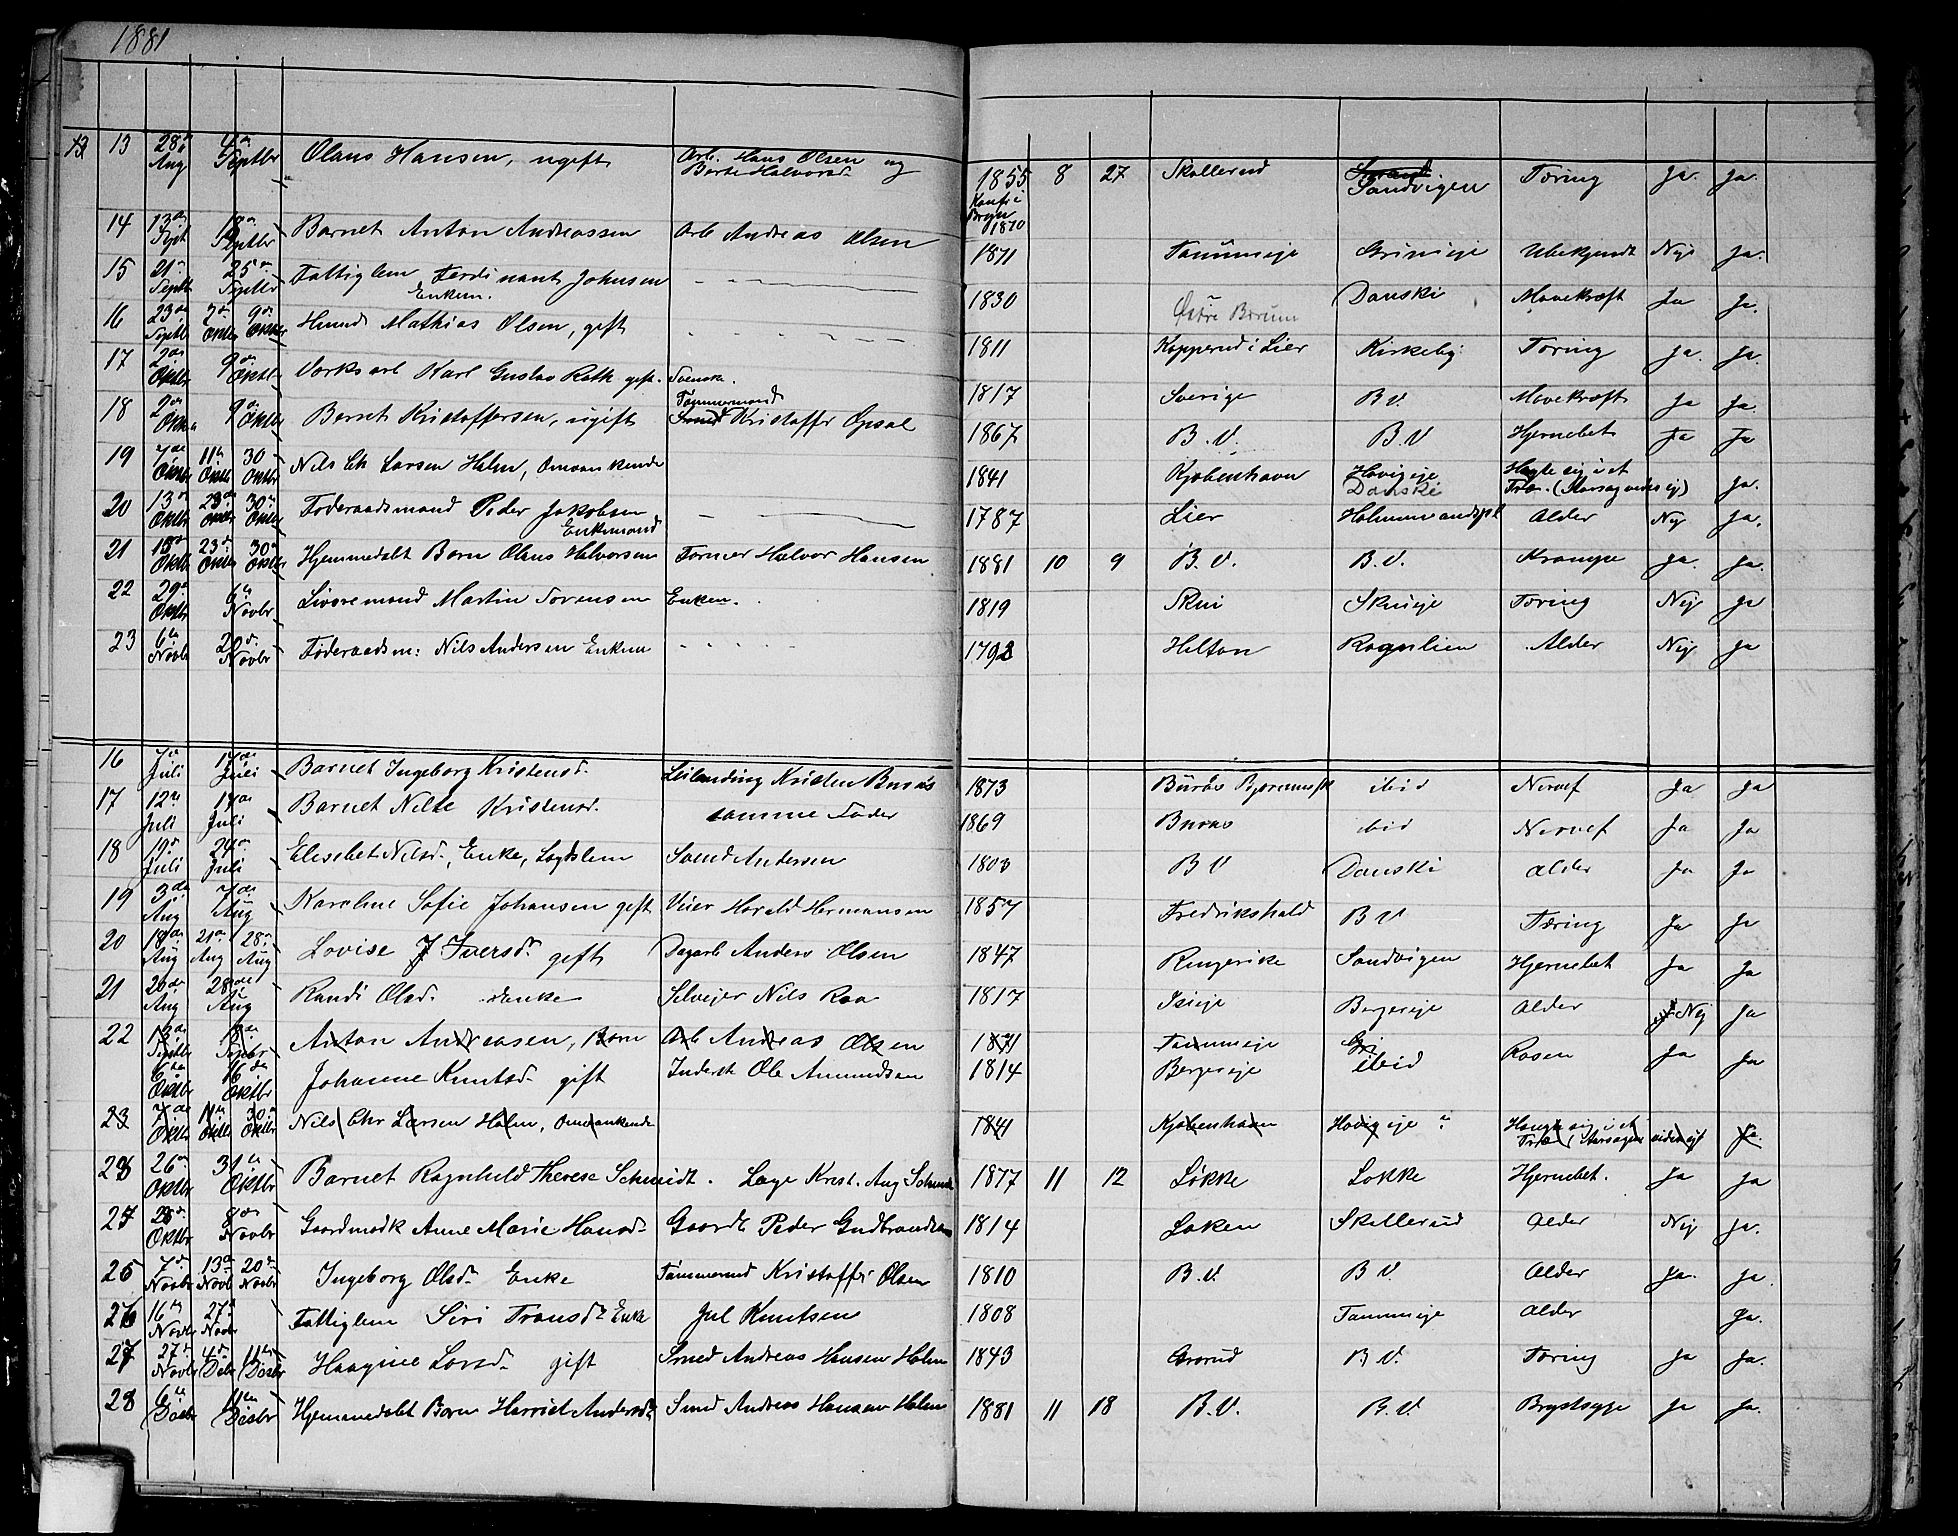 1881
13 13 28de Aug 4de Septbr Olaus Hansen, ugift Arb. Hans Olsen og Berte Halvorsd. 1855 8 27 Skollerud Sandvigen Tæring Ja. Ja.
Konf. i Brgn 1870
14 13de Sept 18de Septbr Barnet Anton Andreassen Arb Andreas Olsen 1871 Tanumeje Grinieje Ubekjendt Nej Ja.
15 21de Septb 25de Septbr Fattiglem Ferdinant Johnsen Enkem. 1830 Østre Bærum Danski Mavekræft Ja Ja.
16 23de Septb 2de Oktbr 9de Oktbr Husmd Mathias Olsen, gift 1811 Kopperud i Lier Kirkeby Tæring Ja. Ja.
17 2de Oktbr 9de Oktbr Værksarb Karl Gustav Rath gift. Svenske. 1817 Sverige B.V. Mavekræft Ja Ja.
18 2de Oktbr 9de Oktbr Barnet Kristoffersen, ugift Tømmermand Kristoffer Opsal 1867 B.V. B.V Hjernebet Ja Ja
19 7de Oktbr 11te Oktbr 30 Oktbr Nils Chr Larsen Holm, Omvankende 1841 Kjøbenhavn Høvigeje Danski Hængte sig i et Træ. (Aarsag vides ej) Ja.
20 13de Oktbr 23de Oktbr 30te Oktbr Føderaadsmand Peder Jakobsen Enkemand 1787 Lier Alder Nej Ja.
21 15de Oktbr 23de Oktbr 30te Oktbr Hjemmedøbt Barn Olaus Halvorsen Former Halvor Hansen 1881 10 9 B.V. B.V. Krampe Ja. Ja.
22 29de Oktbr 6te Novbr Livøremand Martin Sørensen Enkem. 1819 Skui Skuieje Tæring Nej Ja
23 6te Novb 20de Novbr Føderaadsm: Nils Andersen Enkem 1792 Helton Rognlien Alder Nej Ja
16 7de Juli 17de Juli Barnet Ingeborg Kristensd. Leilænding Kristen Buraas 1873 ibid Nervef Ja Ja
17 12te Juli 17de Juli Barnet Nelle Kristensd. samme Fader 1869 Buraas ibid Nervef Ja Ja
18 19de Juli 24de Juli Elisebet Nilsd., Enke, Lægdslem Svend Andersen 1803 B V Danski Alder Ja Ja
19 3de Aug 7de Aug Karoline Sofie Johansen gift Harald Hermansen 1857 Fredrikshald B V Tæring Ja Ja
20 18de Aug 21de Aug 28de Aug Lovise J Iversdr gift Dagarb Anders Olsen 1847 Ringerike Sandvigen Hjernebet Ja Ja
21 26de Aug 28de Aug Randi Olsd. Enke Selvejer Nils Raa 1817 Isieje Bergereje Alder Nej Ja
22 13de Septb 18de Septbr Anton Andreasen, Barn Arb Andreas Olsen 1871 Tanumeje Gri
6te Oktbr 16de Oktbr Johanne Knutsd. gift Inderst Ole Amundsen 1814 Bergereje ibid Rosen Ja Ja
23 7de Oktbr 11te Oktbr 30te Oktbr Nils Chr Larsen Holm, Omvankende 1841 Kjøbenhavn Høvigeje Hængte sig i et Træ (Aarsagen vides ej) Ja.
26de Oktbr 31te Oktbr Barnet Ragnhild Therese Schmidt. Læge Krist. Aug Schmidt 1877 11 12 Løkke Løkke Hjernebet. Ja Ja
28de Oktbr 8de Novbr Gaardmdk Anne Marie Hansd. Gaardb Peder Gudbrandsen 1814 Løken Skollerud Alder Nej Ja.
7de Novbr 13de Novb 20de Novbr Ingeborg Olsd. Enke Tømmermd Kristoffer Olsen 1810 B.V. B V. Alder Ja. Ja.
16de Novbr 27de Novbr Fattiglem Siri Enke Knutsen 1808 Tanumeje Alder Ja.
27 27de Novbr 4de Dcbr 11te Desbr Haagine Larsd. gift Smed Andreas Hansen Holm 1843 Grorud B V. Tæring Ja Ja.
28 6te Desbr 11te Desbr Hjemmedøbt Barn Harriet Andersdr. Smed Andreas Hansen Holm 1881 11 18 B.V. B.V. Brystsyge Ja Ja.